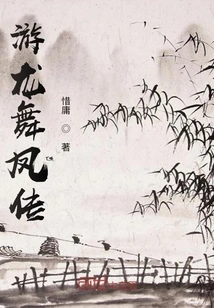 游龙舞凤传
惜庸 ◎ 著